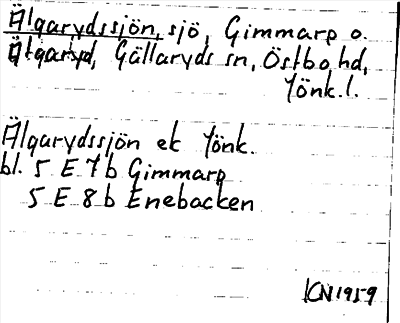 Älgarydssjön, sjö, Gimmarp o.
Älgaryd, Gällaryds sn, Östbo hd,
Jönk. l.
Älgarydssjön ek Jönk.
bl. 5 E 7 b Gimmarp
5 E 8 b Enebacken
KN 1959